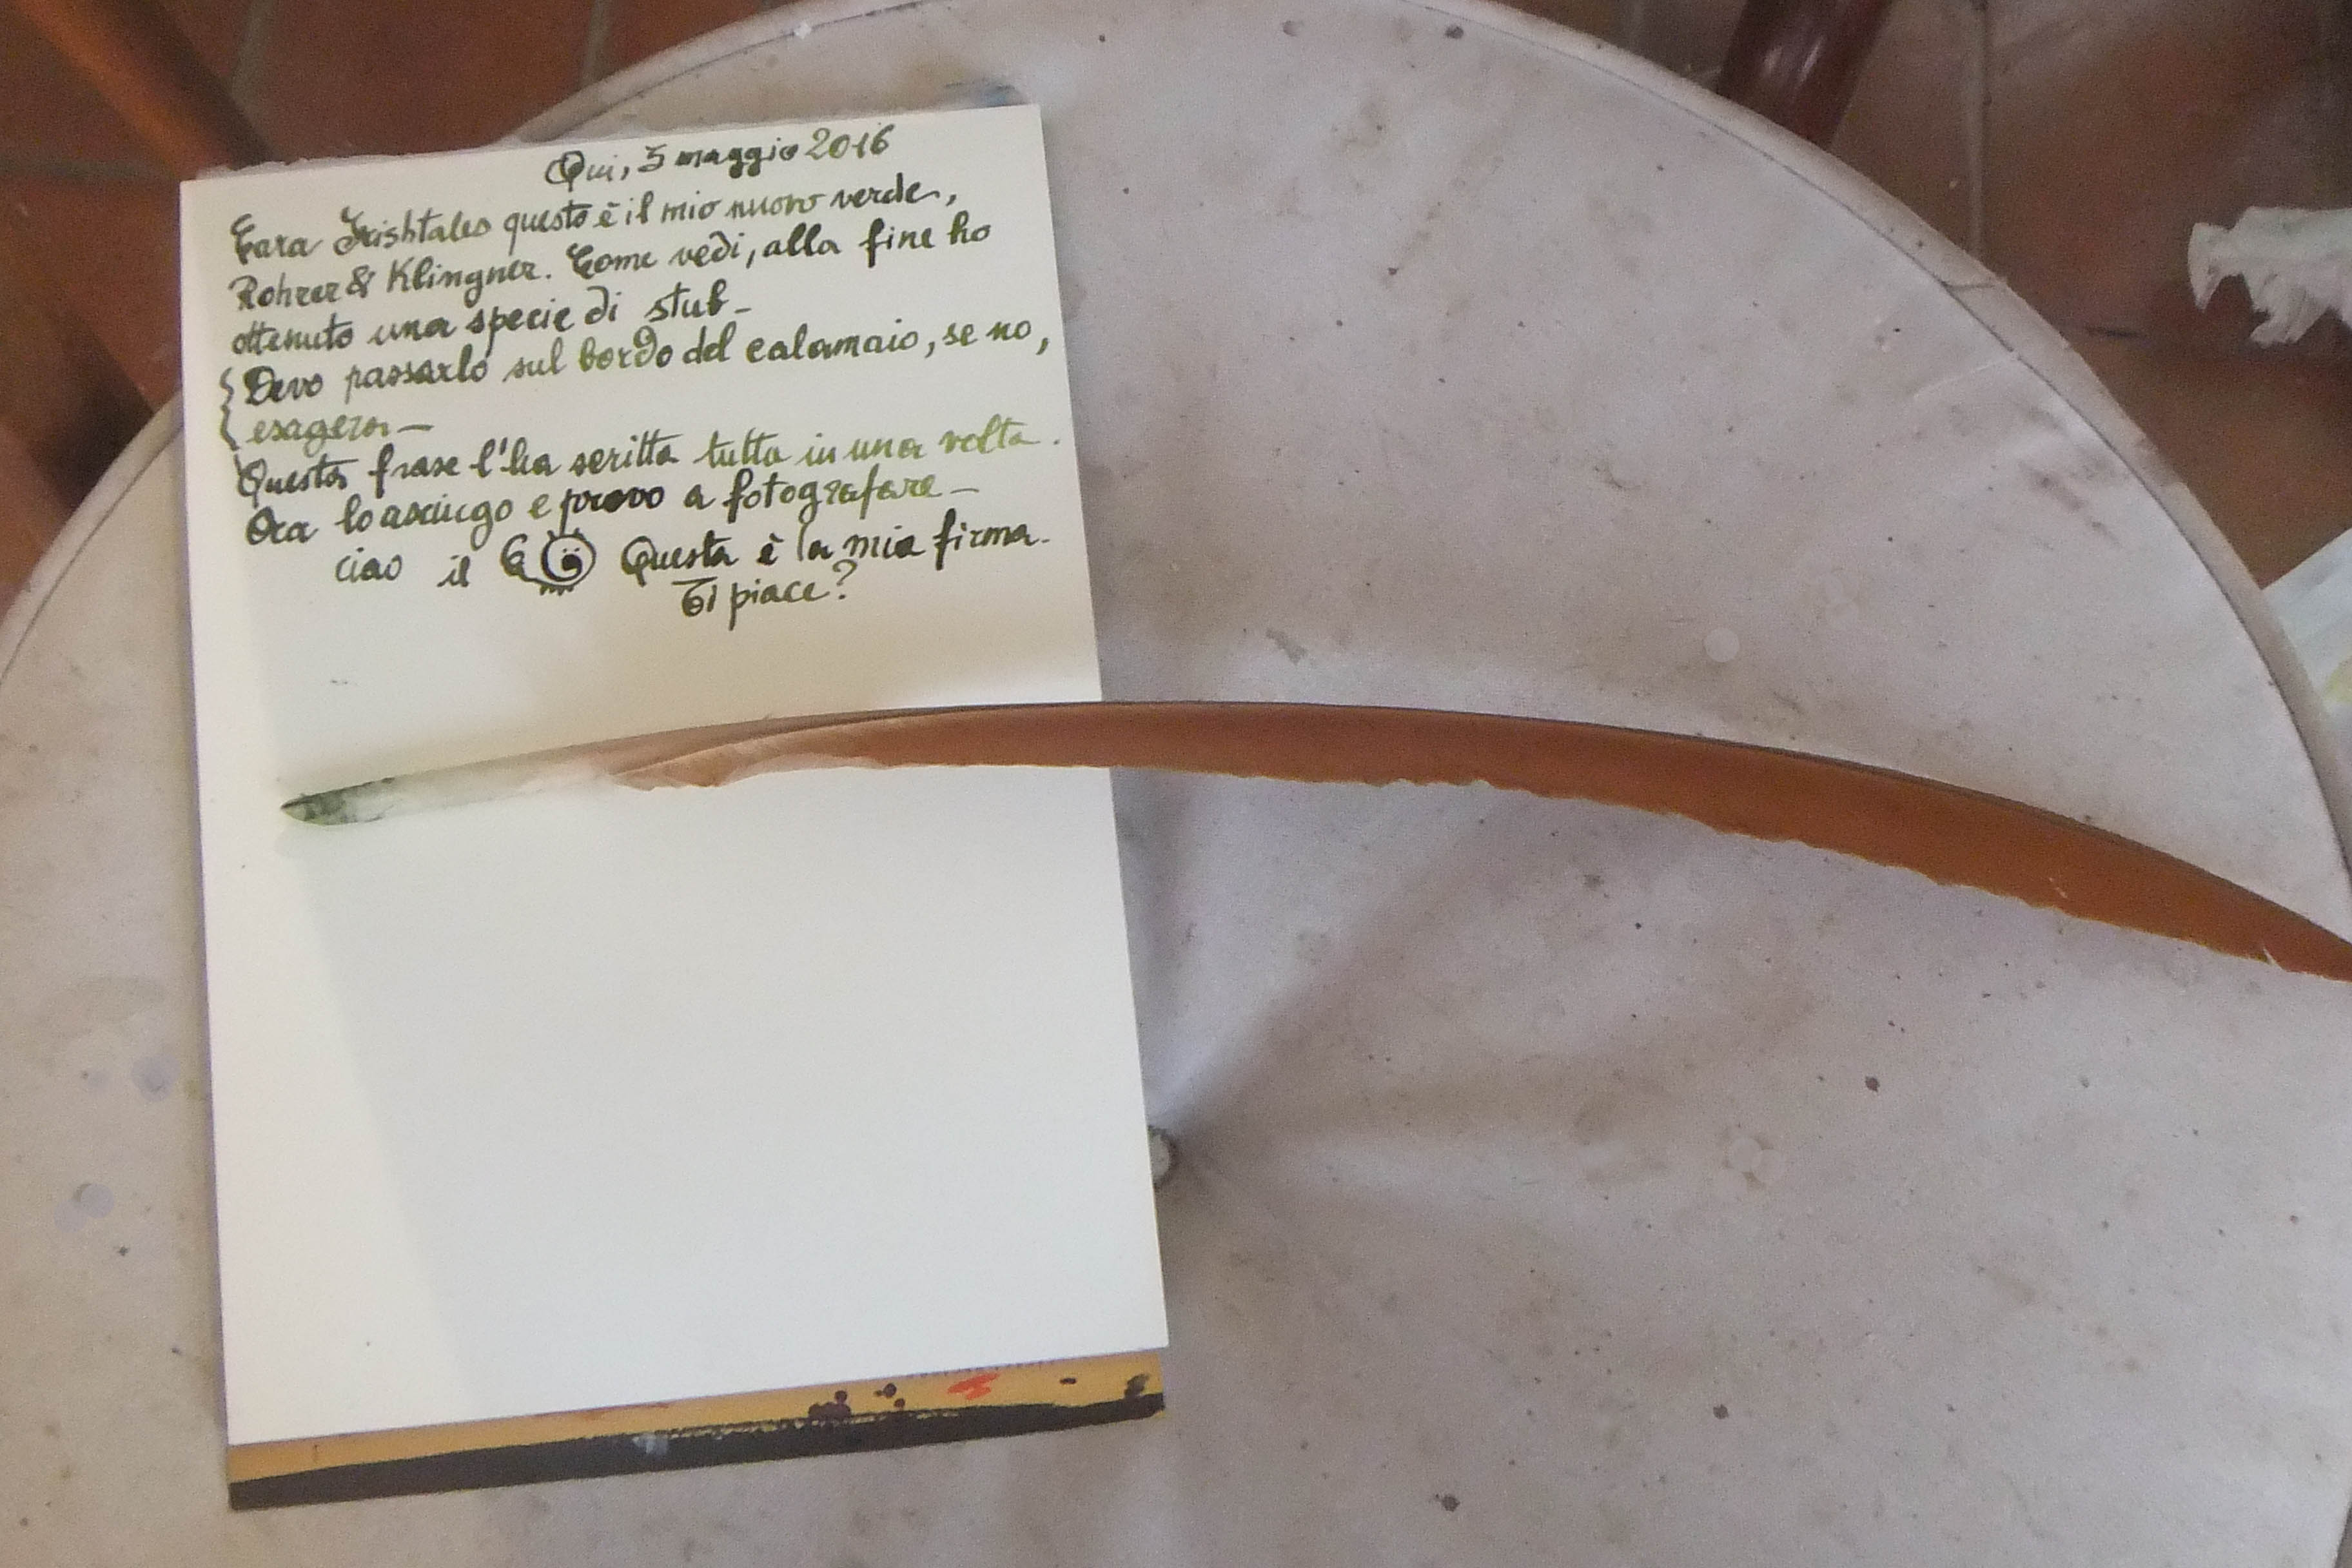 Qui, 5 maggio 2016
Cara Irishtales questo è il mio nuovo verde,
Rohrer & Klingner. Come vedi, alla fine ho
ottenuto una specie di stub_
Devo passarlo sul bordo del calamaio, se no,
esagera_
Questa frase l'ha scritta tutta in una volta.
Ora lo asciugo e provo a fotografare_
ciao il Questa è la mia firma.
Ti piace?